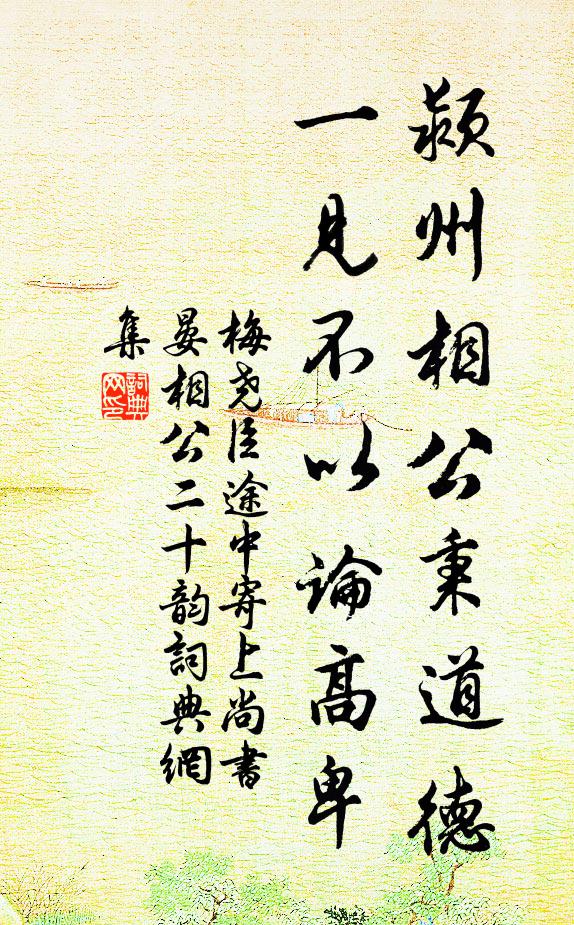 颍州相公秉道德
一見不以論高卑
梅尧臣途中寄上尚書
晏相公二十韵詞典網
集
詞典
网印